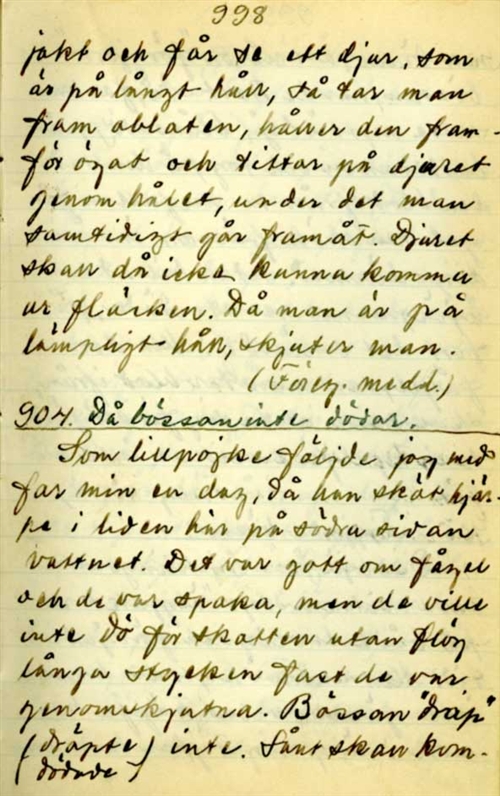 998
jakt och får se ett djur, som
är på långt håll, så tar man
fram oblaten, håller den fram-
för ögat och tittar på djuret
genom hålet, under det man
samtidigt går framåt. Djuret
skall då icke kunna komma
ur fläcken. Då man är på
lämpligt håll, skjuter man.
(Föreg. medd.)
904. Då bössan inte dödar.
Som lillpojke följde jag med
far min en dag, då han sköt hjär-
pe i liden här på södra sidan
vattnet. Det var gott om fågel
och de var spaka, men de ville
inte dö för skotten utan flög
långa stycken fast de var
genomskjutna. Bössan "dräp"
(dräpte) inte. Sånt skall kom-
(dödade)